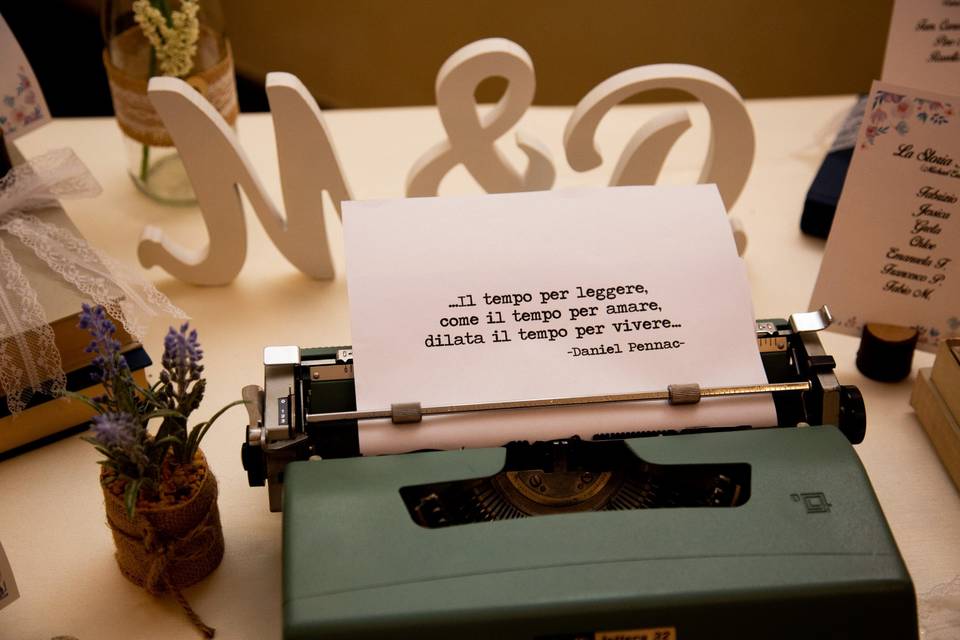 M & D
…Il tempo per leggere,
come il tempo per amare,
dilata il tempo per vivere…
-Daniel Pennac-
La Storia
Fabrizio
Jessica
Greta
Chloe
Emanuela F.
Francesco P.
Fabio M.
lettera 32